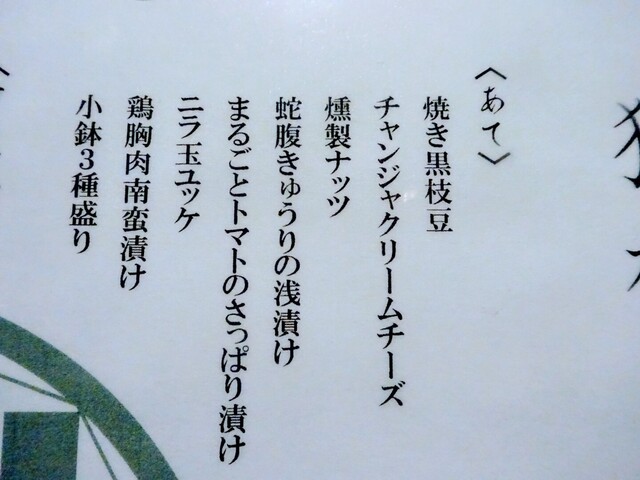 〈あて〉
焼き黒枝豆
チャンジャクリームチーズ
燻製ナッツ
蛇腹きゅうりの浅漬け
まるごとトマトのさっぱり漬け
ニラ玉ユッケ
鶏胸肉南蛮漬け
小鉢3種盛り